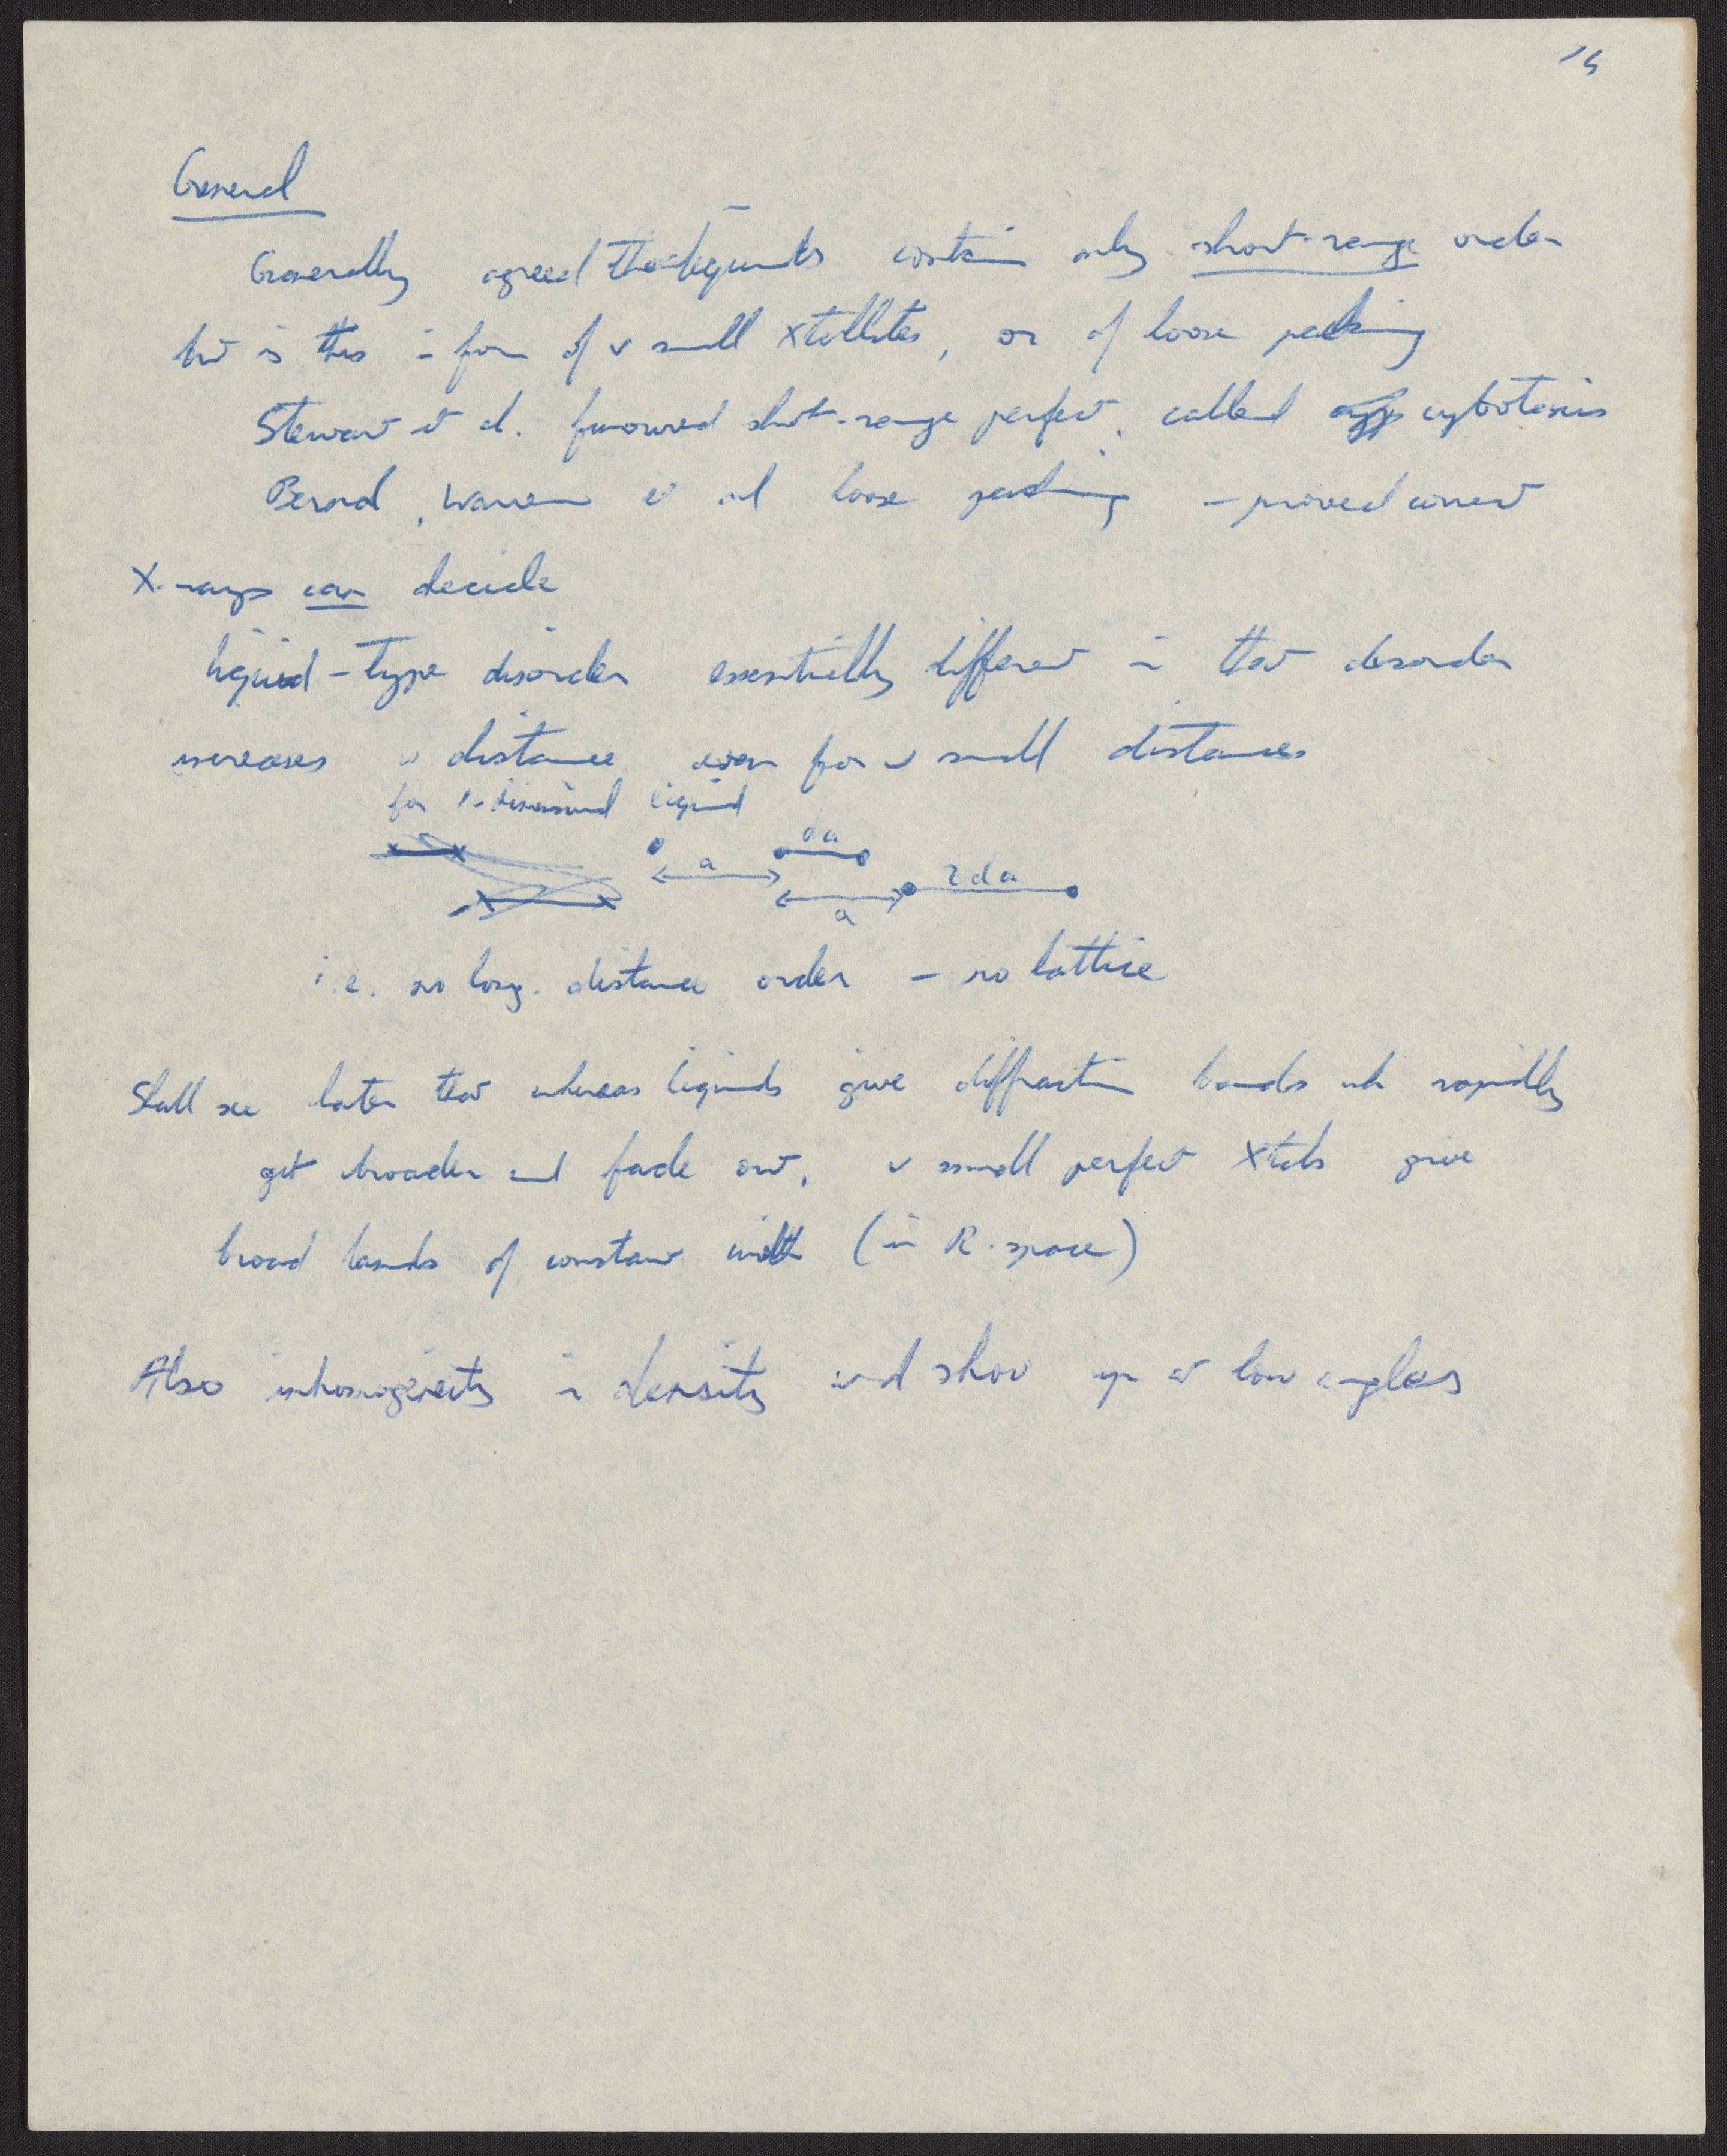 15
General
Generally agreed that liquids contain only short-range order
but is this in form of v small xtallites, or of loose packing
Stewart et al. favoured short-range perfect, called cybotaxis
Bernal, Warren et al loose packing - proved correct
X-rays can decide
liquid-type disorder essentially different in that disorder
increases w distance even for v small distances
for 1-dimensional liquid
da
a 2da
a
i.e. no long-distance order - no lattice
Shall see later that whereas liquids give diffraction bands wh rapidly
get broader and fade out, v small perfect xtals give
broad bands of constant width (in R-space)
Also inhomogeneity in density wd show up at low angles